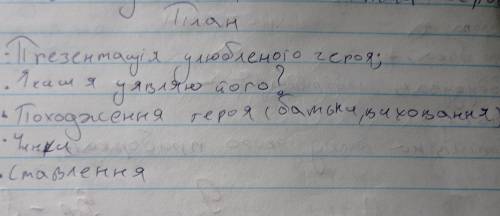 План
· Презентація улюбленого героя;
· Яким я уявляю його?
· Походження героя (батьки, виховання)
· Чинки
· Ставлення